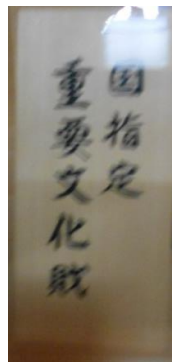 国指定
重要文化財